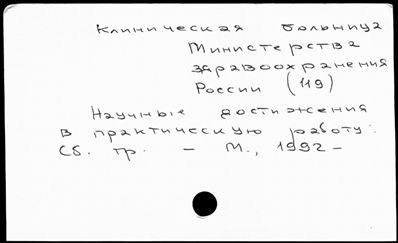 Клиническая больница
Министерства
здравоохранения
России (119)
Научные достижения
в практическую работу:
Сб. тр. - М., 1992 -